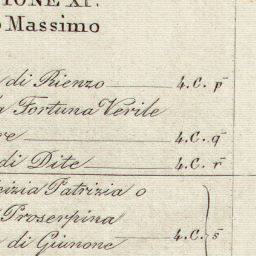 IONE XI.
o Massimo
di Rienzo 4.C. p
Fortuna Verile
re 4.C. q
di Dite 4.C. r
Patrizia o
Proserpina
di Giunone 4.C. s